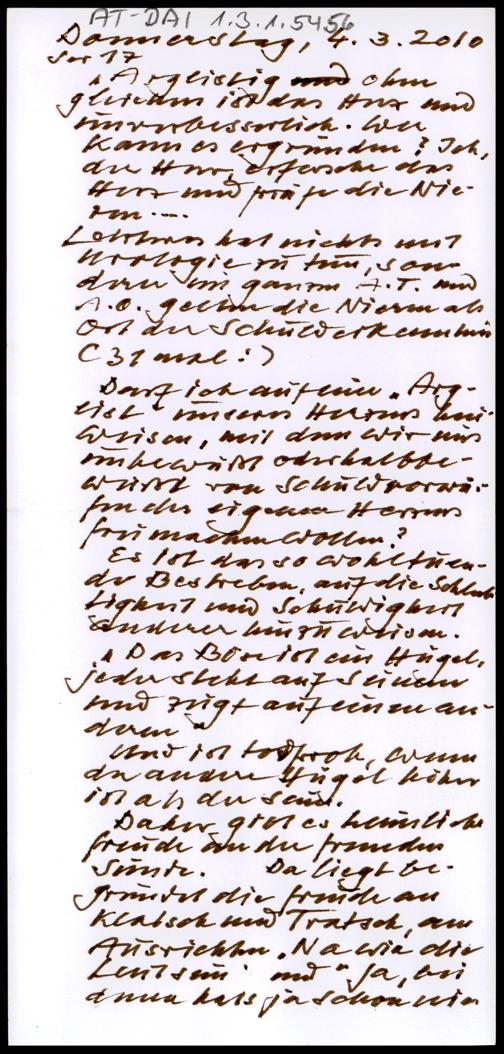 AT-DAI 1.3.1.5456
Donnerstag, 4.3.2010
Jer 17
„Arglistig und ohne
gleichen ist das Herz und
unverbesserlich. Wer
kann es ergründen? Ich,
der Herr, erforsche das
Herz und prüfe die Nie-
ren ....
Letzteres hat nichts mit
Urologie zu tun, son-
dern im ganzen A.T. und
A.O. gelten die Nieren als
Ort der Schulderkenntnis
(31 mal!)
Darf ich auf eine „Arg-
list" unseres Herzens hin-
weisen, mit dem wir uns
unbewußt oder halbbe-
wußt von Schuldvorwür-
fen des eigenen Herzens
frei machen wollen?
Es ist das so wohltuen-
de Bestreben, auf die Schlech
tigkeit und Schuldigkeit
anderer hinzuweisen.
„Das Böse ist ein Hügel,
jeder steht auf seinem
und zeigt auf einen an-
dern"
Und ist todfroh, wenn
der andere Hügel höher
ist als der sein.
Daher gibt es heimliche
Freude an der fremden
Sünde. Da liegt be-
gründet die Freude an
Klatsch und Tratsch, am
Ausrichten „Na wie die
Leut sein" und "Ja, bei
denen hats ja schon